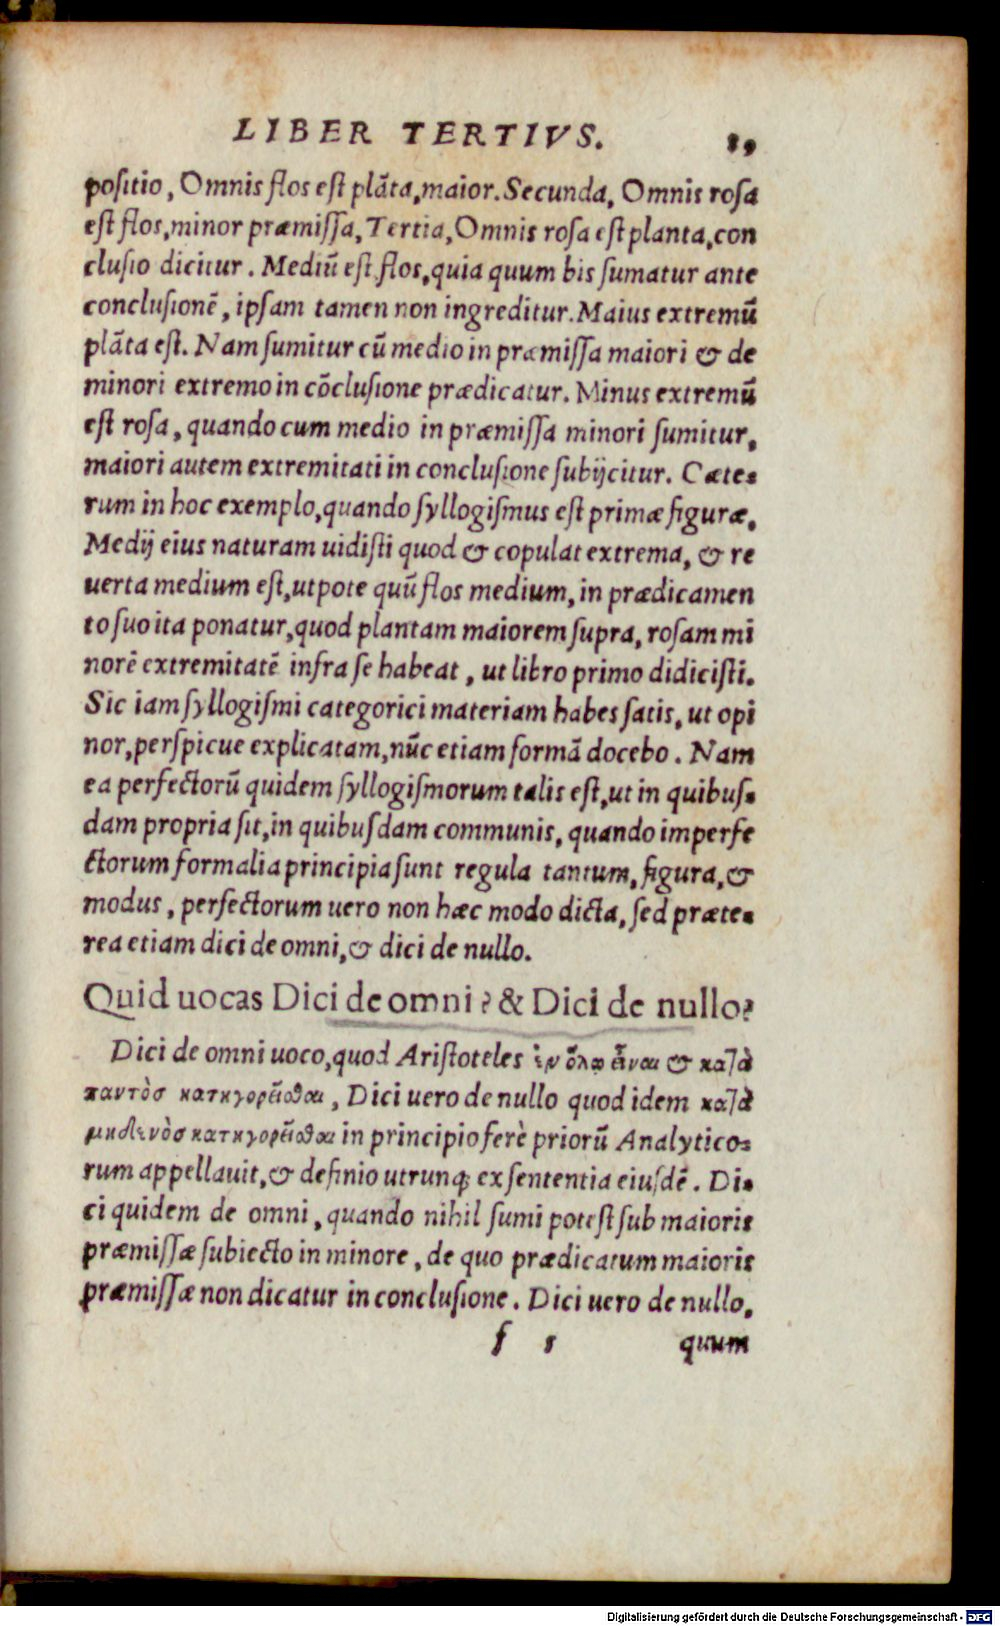 LIBER TERTIVS. 89
positio, Omnis flos est plāta, maior. Secunda, Omnis rosa
est flos, minor præmissa, Tertia, Omnis rosa est planta, con
clusio dicitur. Mediū est flos, quia quum bis sumatur ante
conclusionē, ipsam tamen non ingreditur. Maius extremū
plāta est. Nam sumitur cū medio in præmissa maiori & de
minori extremo in cōclusione prædicatur. Minus extremū
est rosa, quando cum medio in præmissa minori sumitur,
maiori autem extremitati in conclusione subijcitur. Cæte-
rum in hoc exemplo, quando syllogismus est primæ figuræ,
Medij eius naturam uidisti quod & copulat extrema, & re
uerta medium est, utpote quū flos medium, in prædicamen
to suo ita ponatur, quod plantam maiorem supra, rosam mi
norē extremitatē infra se habeat, ut libro primo didicisti.
Sic iam syllogismi categorici materiam habes satis, ut opi
nor, perspicue explicatam, nūc etiam formā docebo. Nam
ea perfectorū quidem syllogismorum talis est, ut in quibus-
dam propria sit, in quibusdam communis, quando imperfe
ctorum formalia principia sunt regula tantum, figura, &
modus, perfectorum uero non hæc modo dicta, sed præte-
rea etiam dici de omni, & dici de nullo.
Quid uocas Dici de omni? & Dici de nullo?
Dici de omni uoco, quod Aristoteles ἐν ὅλῳ εἶναι & κατὰ
παντὸς κατηγορεῖσθαι, Dici uero de nullo quod idem κατὰ
μηδενὸς κατηγορεῖσθαι in principio ferè priorū Analytico-
rum appellauit, & definio utrunq; ex sententia eiusdē. Di-
ci quidem de omni, quando nihil sumi potest sub maioris
præmissæ subiecto in minore, de quo prædicatum maioris
præmissæ non dicatur in conclusione. Dici uero de nullo,
f 5 quum
Digitalisierung gefördert durch die Deutsche Forschungsgemeinschaft - DFG